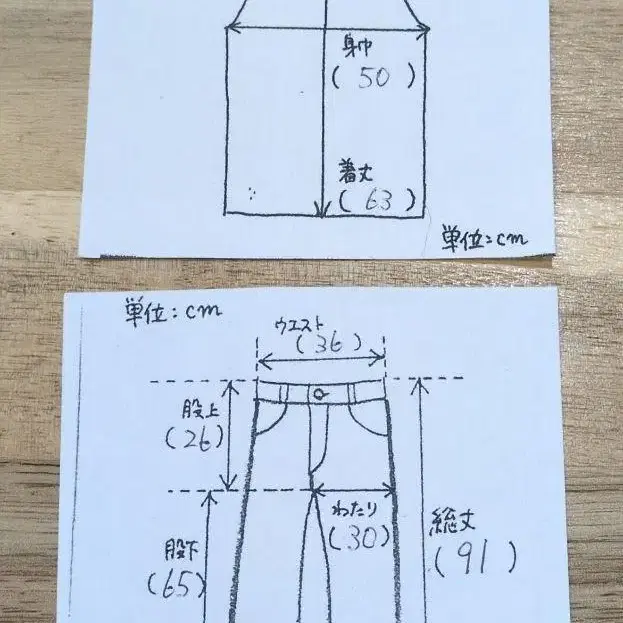 身巾
(50)
着丈
(63)
単位:cm
単位:cm
ウエスト
(36)
股上
(26)
わたり
(30)
総丈
(91)
股下
(65)